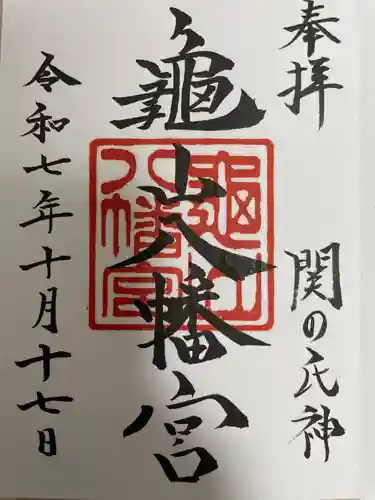 奉拝
関の氏神
龜山八幡宮
龜山八幡宮
令和七年十月十七日